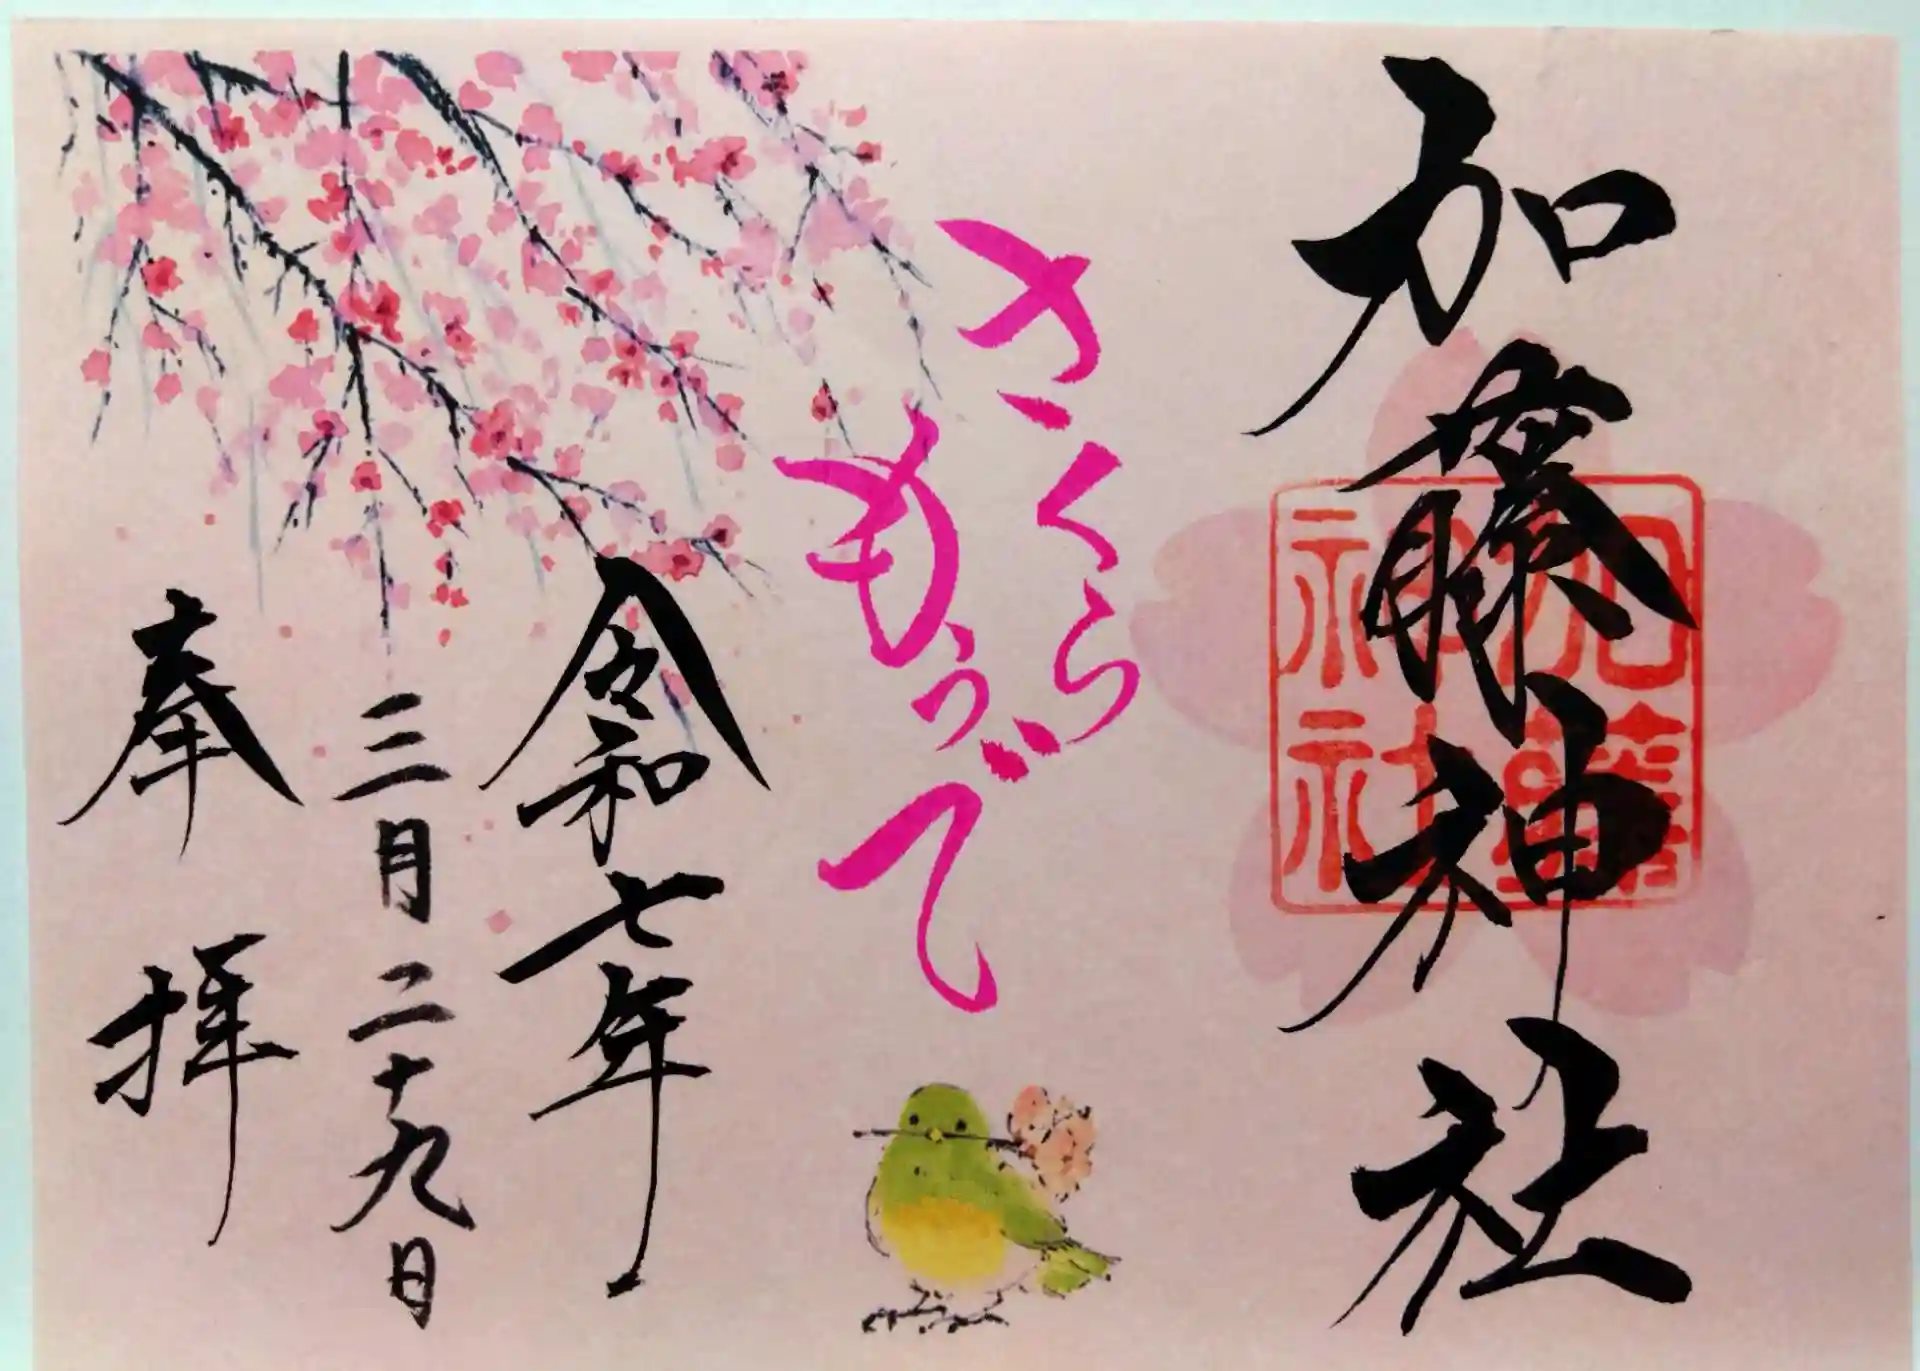 加藤神社
加藤神社
さくら
もうで
令和七年
三月二十九日
奉拝